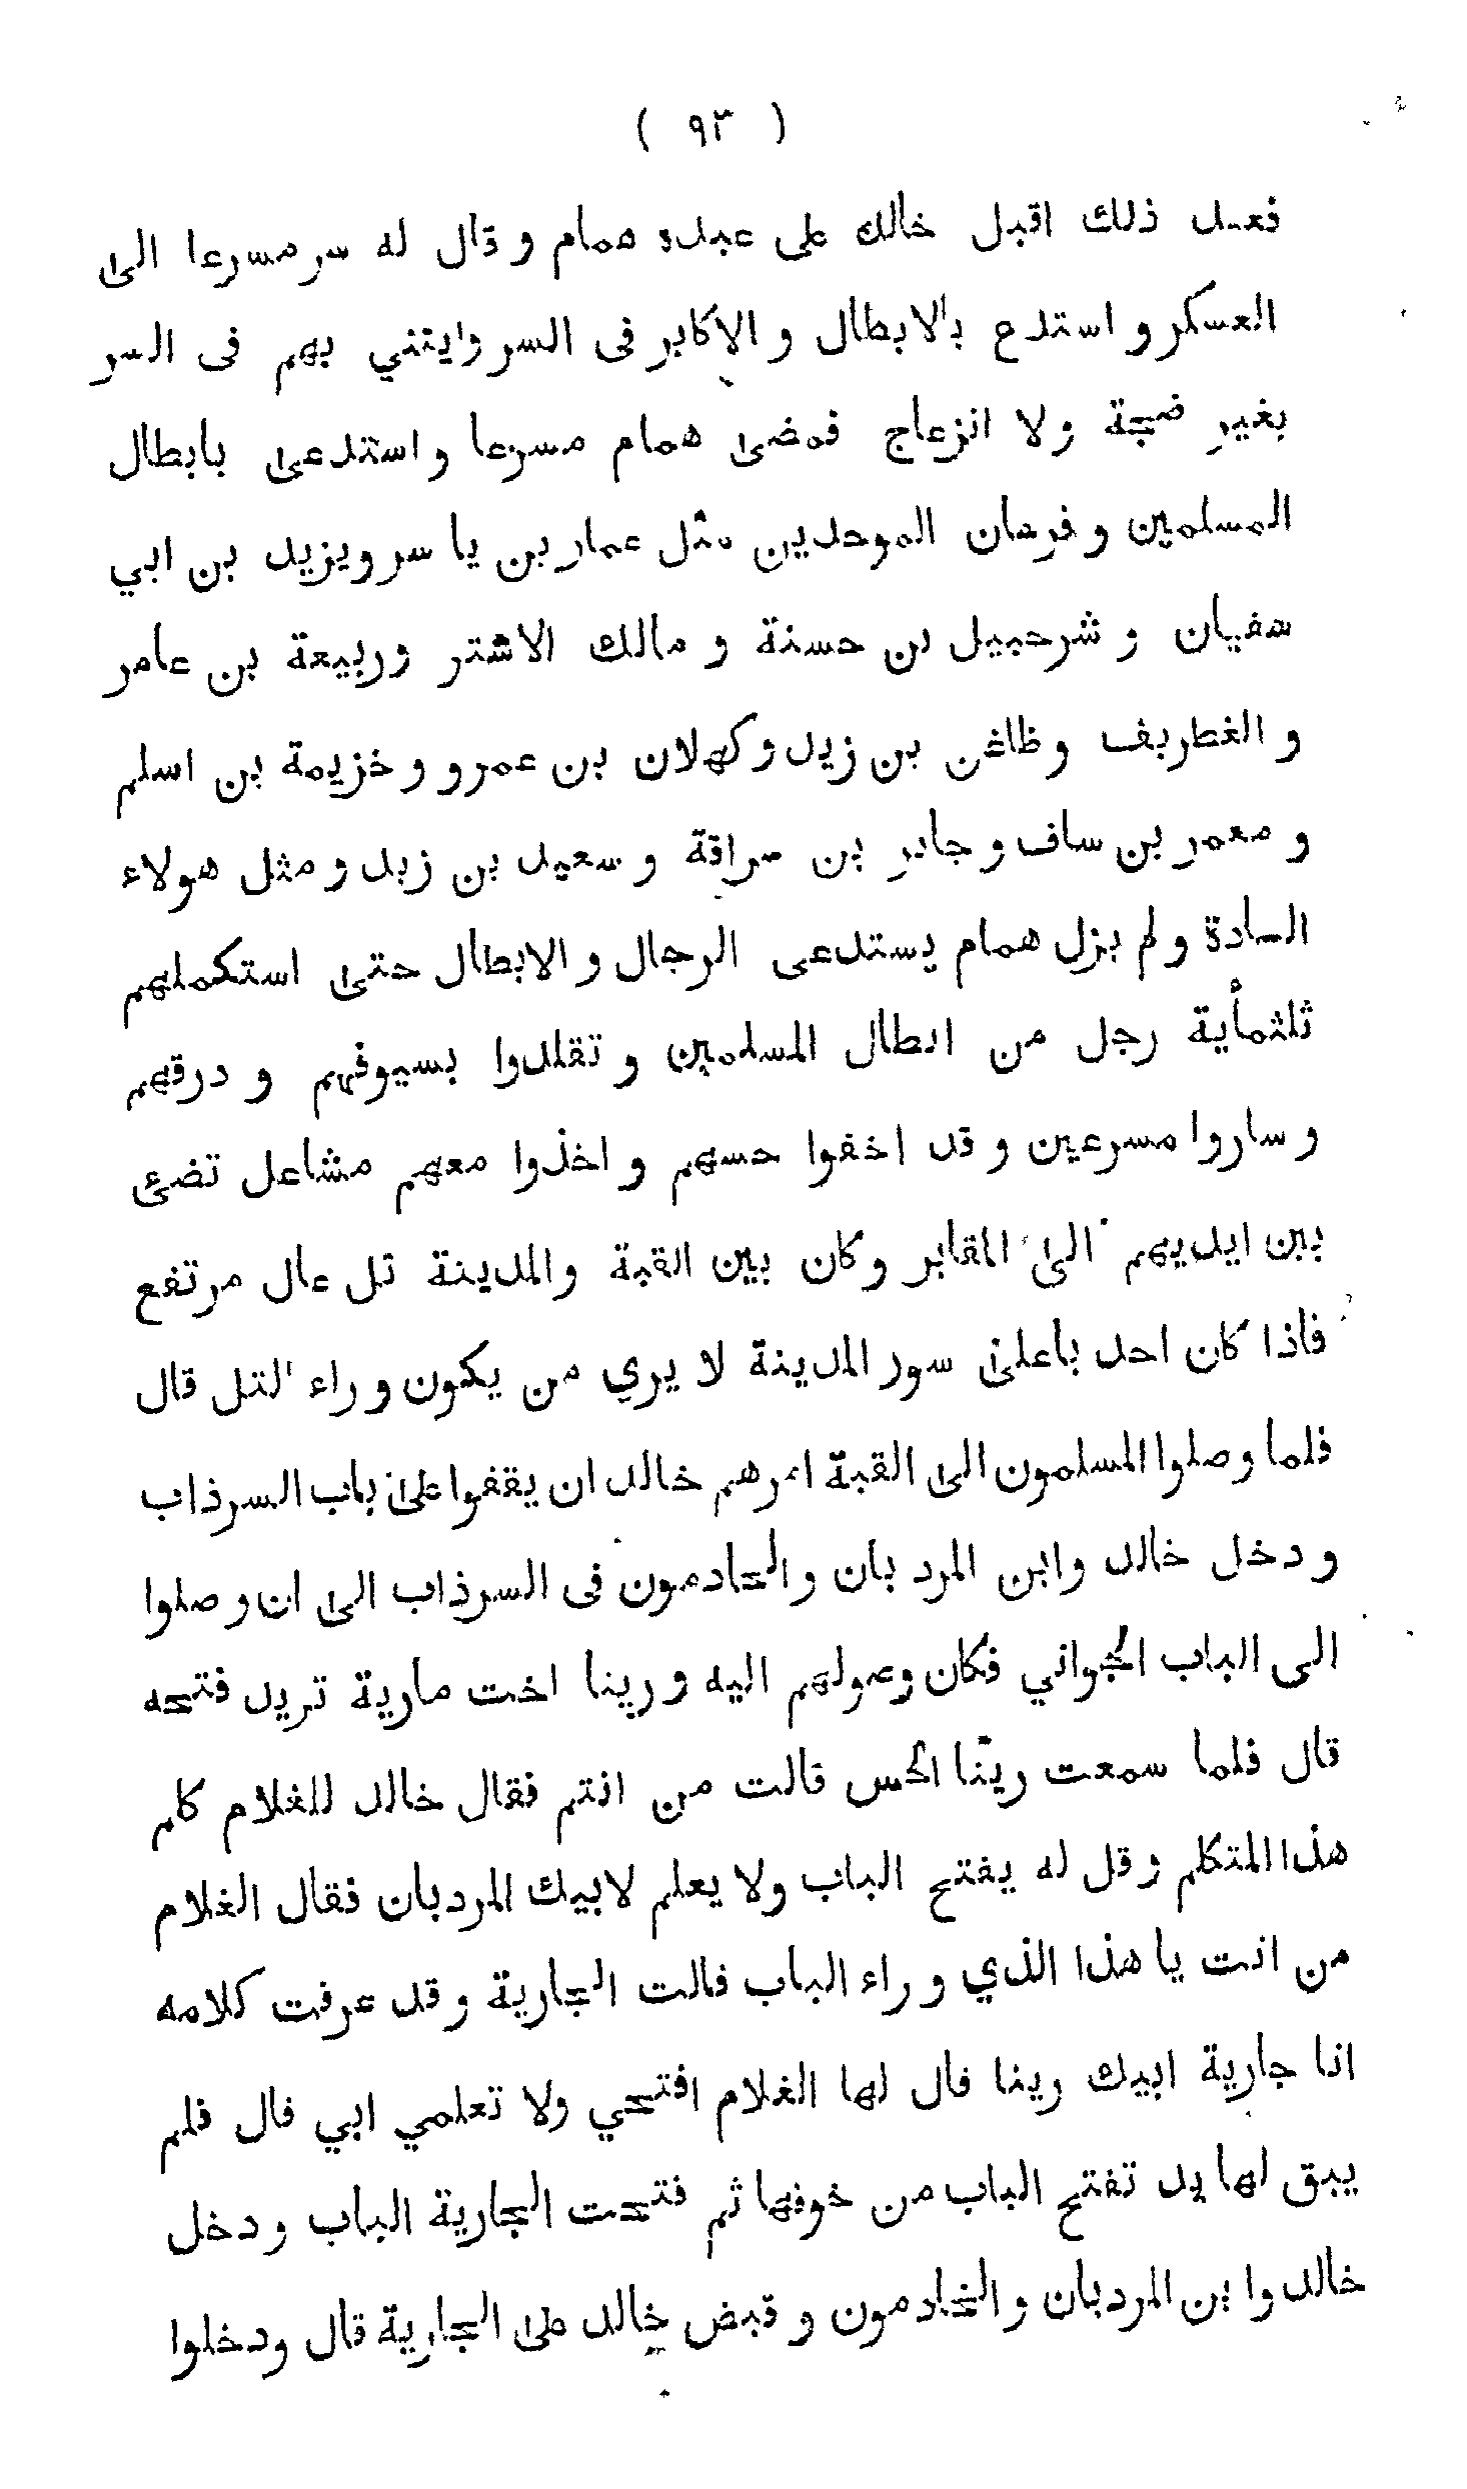 ( ٩٣ )
فعند ذلك اقبل خالك على عبده همام و قال له سر مسرعا الى
العسكر و استدع بالابطال و الاكابر فى السر و ايتني بهم فى السر
بغير ضجة ولا انزعاج فمضى همام مسرعا و استدعى بابطال
المسلمين و فرسان الموحدين مثل عمار بن يا سر و يزيد بن ابي
سفيان و شرحبيل بن حسنة و مالك الاشتر وربيعة بن عامر
و الغطريف و ظاغن بن زيد و كهلان بن عمرو و خزيمة بن اسلم
و معمر بن ساف و جابر بن سراقة و سعيد بن زيد و مثل هولاء
السادة و لم يزل همام يستدعى الرجال و الابطال حتى استكملهم
ثلثمأية رجل من ابطال المسلمين و تقلدوا بسيوفهم و درقهم
و ساروا مسرعين و قد اخفوا حسهم و اخذوا معهم مشاعل تضئ
بين ايديهم الى المقابر و كان بين القبة والمدينة تل عال مرتفع
فاذا كان احد بأعلى سور المدينة لا يري من يكون و راء التل قال
فلما و صلوا المسلمون الى القبة امرهم خالد ان يقفوا على باب السرذاب
و دخل خالد وابن المرد بان والخادمون فى السرذاب الى ان و صلوا
الى الباب الجواني فكان وصولهم اليه و رينا اخت مارية تريد فتحه
قال فلما سمعت رينّا الحس قالت من انتم فقال خالد للغلام كلم
هذا المتكلم و قل له يفتح الباب ولا يعلم لابيك المردبان فقال الغلام
من انت يا هذا الذي و راء الباب قالت الجارية و قد عرفت كلامه
انا جارية ابيك رينا قال لها الغلام افتحي ولا تعلمي ابي قال فلم
يبق لها يد تفتح الباب من خوفها ثم فتحت الجارية الباب و دخل
خالد وا بن المردبان و الخادمون و قبض خالد على الجارية قال ودخلوا